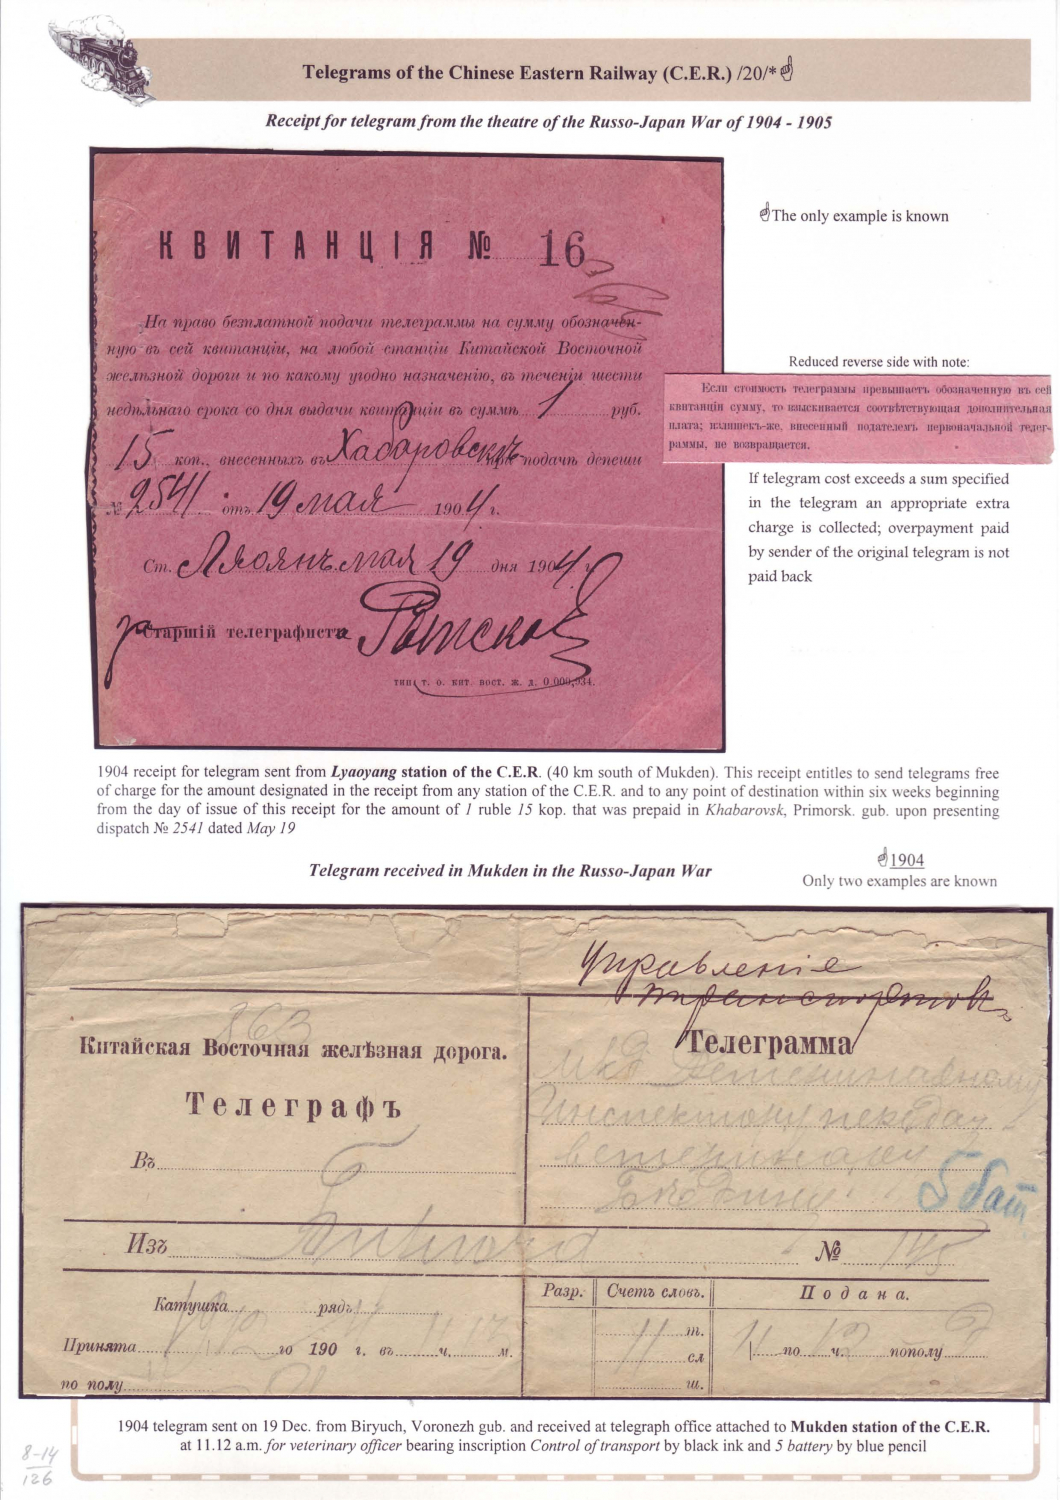 Telegrams of the Chinese Eastern Railway (C.E.R.) /20/*
Receipt for telegram from the theatre of the Russo-Japan War of 1904 - 1905
КВИТАНЦІЯ № 16
На право безплатной подачи телеграммы на сумму обозначен-
ную въ сей квитанціи, на любой станціи Китайской Восточной
желѣзной дороги и по какому угодно назначенію, въ теченіи шести
недѣльнаго срока со дня выдачи квитанціи въ суммѣ 1 руб.
15 коп., внесенныхъ въ Хабаровскѣ при подачѣ депеши
№ 2541 отъ 19 мая 1904 г.
Ст. Ляоянъ мая 19 дня 1904 г.
за Старшій телеграфиста
тип. т. о. кит. вост. ж. д. 0.000,934.
The only example is known
Reduced reverse side with note:
Если стоимость телеграммы превышаетъ обозначенную въ сей
квитанціи сумму, то взыскивается соотвѣтствующая дополнительная
плата; излишекъ-же, внесенный подателемъ первоначальной телег-
раммы, не возвращается.
If telegram cost exceeds a sum specified
in the telegram an appropriate extra
charge is collected; overpayment paid
by sender of the original telegram is not
paid back
1904 receipt for telegram sent from Lyaoyang station of the C.E.R. (40 km south of Mukden). This receipt entitles to send telegrams free
of charge for the amount designated in the receipt from any station of the C.E.R. and to any point of destination within six weeks beginning
from the day of issue of this receipt for the amount of 1 ruble 15 kop. that was prepaid in Khabarovsk, Primorsk. gub. upon presenting
dispatch № 2541 dated May 19
Telegram received in Mukden in the Russo-Japan War
1904
Only two examples are known
Управленіе
транспортовъ
863
Китайская Восточная желѣзная дорога.
Телеграфъ
Въ
Телеграмма
Инспектору
5 бат
Изъ
№
Катушка рядъ
Принята го 190 г. въ ч. м.
по полу
Разр. Счетъ словъ. Подана.
11 т.
сл
ш.
11 по 12 ч. пополу
1904 telegram sent on 19 Dec. from Biryuch, Voronezh gub. and received at telegraph office attached to Mukden station of the C.E.R.
at 11.12 a.m. for veterinary officer bearing inscription Control of transport by black ink and 5 battery by blue pencil
8-14
126